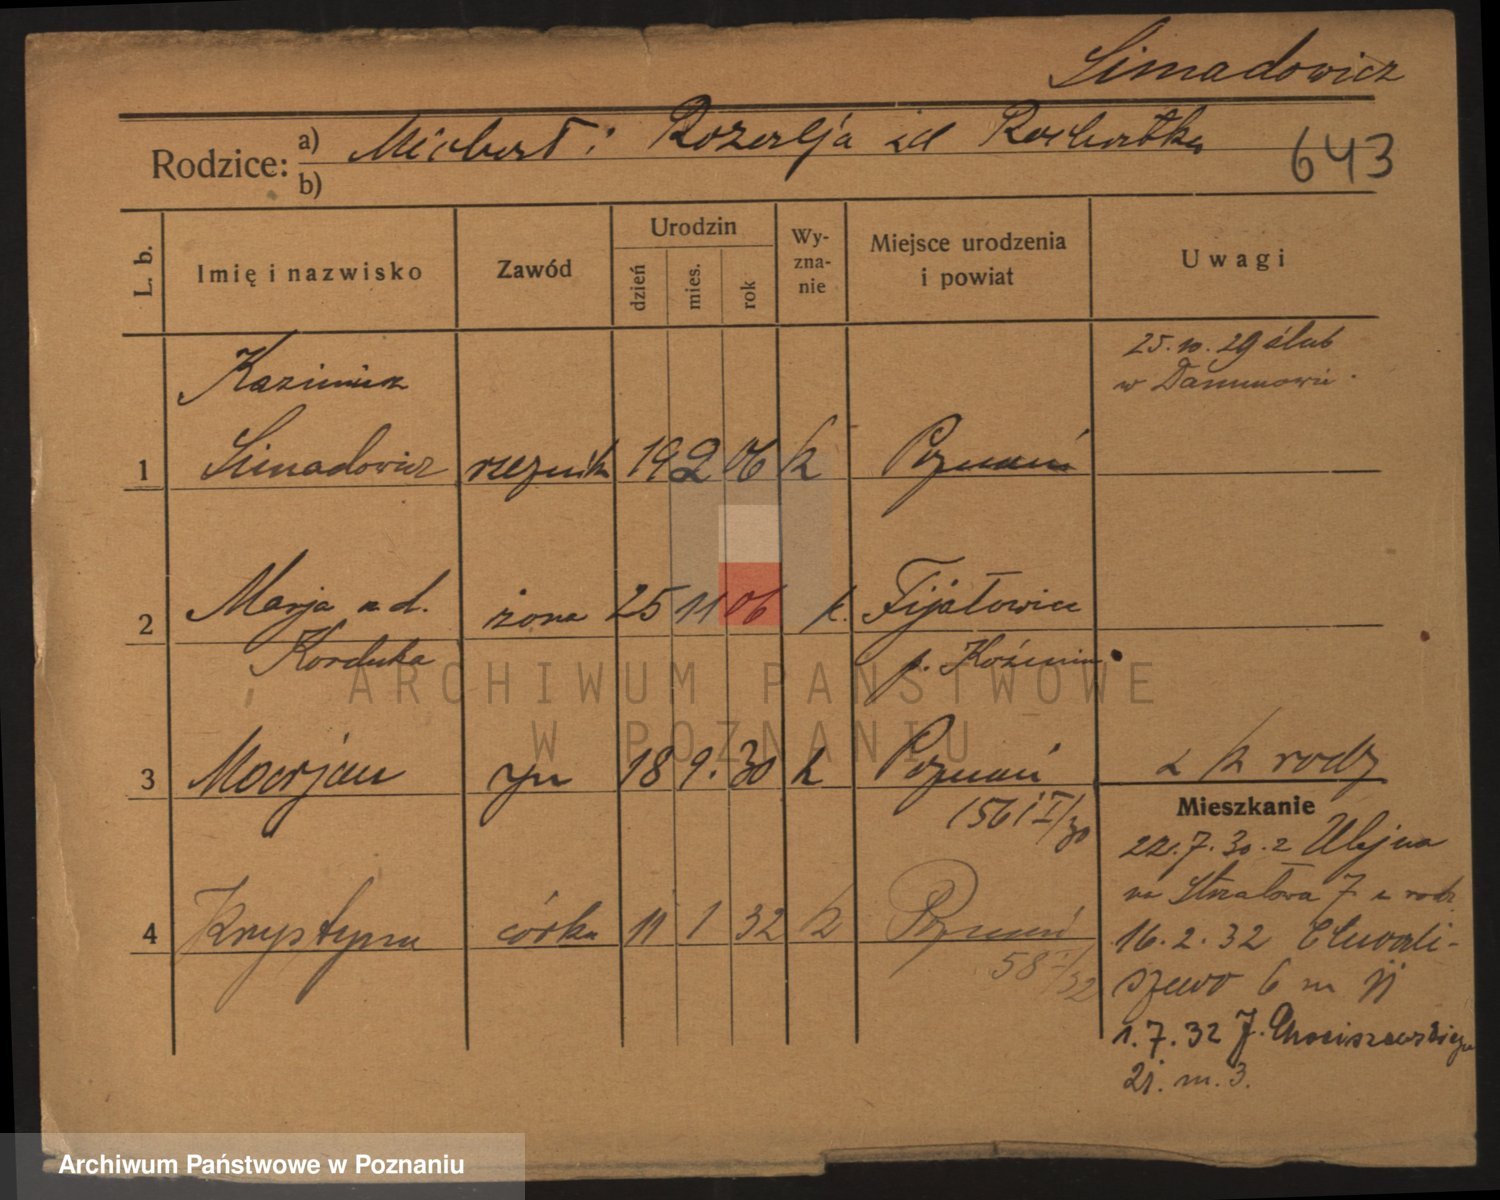 Simadowicz
Rodzice: a) Michał i Rozalja zd
b)
643
L. b. Imię i nazwisko Zawód Urodzin dzień mies. rok Wy-zna-nie Miejsce urodzenia i powiat Uwagi
Kazimierz
25. 10. 29 ślub
w
1 Simadowicz rzeźnik 19 2 06 k Poznań
2 Marja z d. żona 25 11 06 k. Fijałowice
Korduka p. Koźmin
3 Marjan syn 18 1. 30 k Poznań
156 I/30
z k rodz
Mieszkanie
22. 7. 30. z
na Strzałowa 7 u rodz.
4 Krystyna córka 11 1 32 k Poznań
58 I/32
16. 2. 32 Chwali-
szewo 6 m
1. 7. 32 J. Chociszewskiego
21. m. 3.
ARCHIWUM PAŃSTWOWE
W POZNANIU
Archiwum Państwowe w Poznaniu